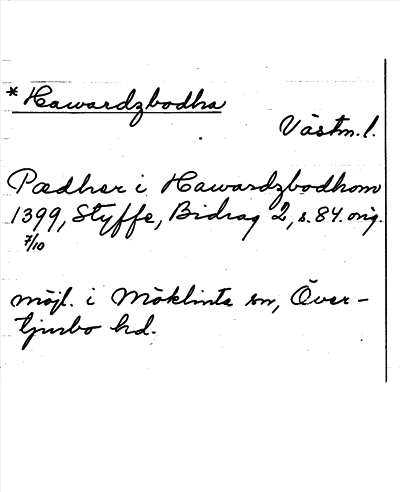 * Hawardzbodha
Västm. l.
Pædher i Hawardzbodhom
1399, Styffe, Bidrag 2, s. 84. orig.
7/10
möjl. i Möklinta sn, Över-
tjurbo hd.